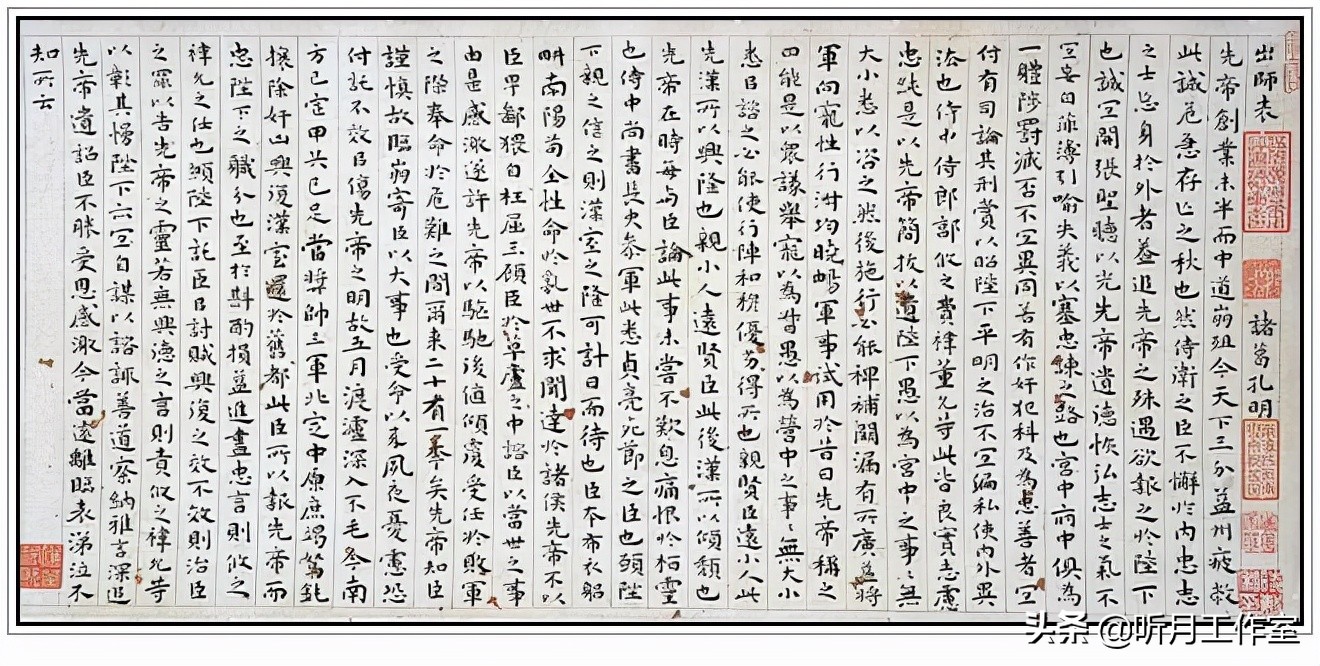 出師表
諸葛孔明
先帝創業未半而中道崩殂今天下三分益州疲敝
此誠危急存亡之秋也然侍衛之臣不懈於内忠志
之士忘身於外者蓋追先帝之殊遇欲報之於陛下
也誠宜開張聖聽以光先帝遺德恢弘志士之氣不
宜妄自菲薄引喻失義以塞忠諫之路也宮中府中俱為
一體陟罰臧否不宜異同若有作奸犯科及為忠善者宜
付有司論其刑賞以昭陛下平明之治不宜偏私使内外異
法也侍中侍郎郭攸之費禕董允等此皆良實志慮
忠純是以先帝簡拔以遺陛下愚以為宮中之事〻無
大小悉以咨之然後施行必能裨補闕漏有所廣益將
軍向寵性行淑均曉暢軍事試用於昔日先帝稱之
曰能是以眾議舉寵以為督愚以為營中之事〻無大小
悉以諮之必能使行陣和穆優劣得所也親賢臣遠小人此
先漢所以興隆也親小人遠賢臣此後漢所以傾頹也
先帝在時每与臣論此事未嘗不歎息痛恨於桓靈
也侍中尚書長史參軍此悉貞亮死節之臣也願陛
下親之信之則漢室之隆可計日而待也臣本布衣躬
畊南陽苟全性命於亂世不求聞達於諸侯先帝不以
臣卑鄙猥自枉屈三顧臣於草廬之中諮臣以當世之事
由是感激遂許先帝以驅馳後值傾覆受任於敗軍
之際奉命於危難之間爾來二十有一年矣先帝知臣
謹慎故臨崩寄臣以大事也受命以來夙夜憂慮恐
付託不效以傷先帝之明故五月渡瀘深入不毛今南
方已定甲兵已足當獎帥三軍北定中原庶竭駑鈍
攘除奸凶興復漢室還於舊都此臣所以報先帝而
忠陛下之職分也至於斟酌損益進盡忠言則攸之
禕允之任也願陛下託臣以討賊興復之效不效則治臣
之罪以告先帝之靈若無興德之言則責攸之禕允等
以彰其慢陛下亦宜自謀以諮諏善道察納雅言深追
先帝遺詔臣不勝受恩感激今當遠離臨表涕泣不
知所云
头条 @听月工作室